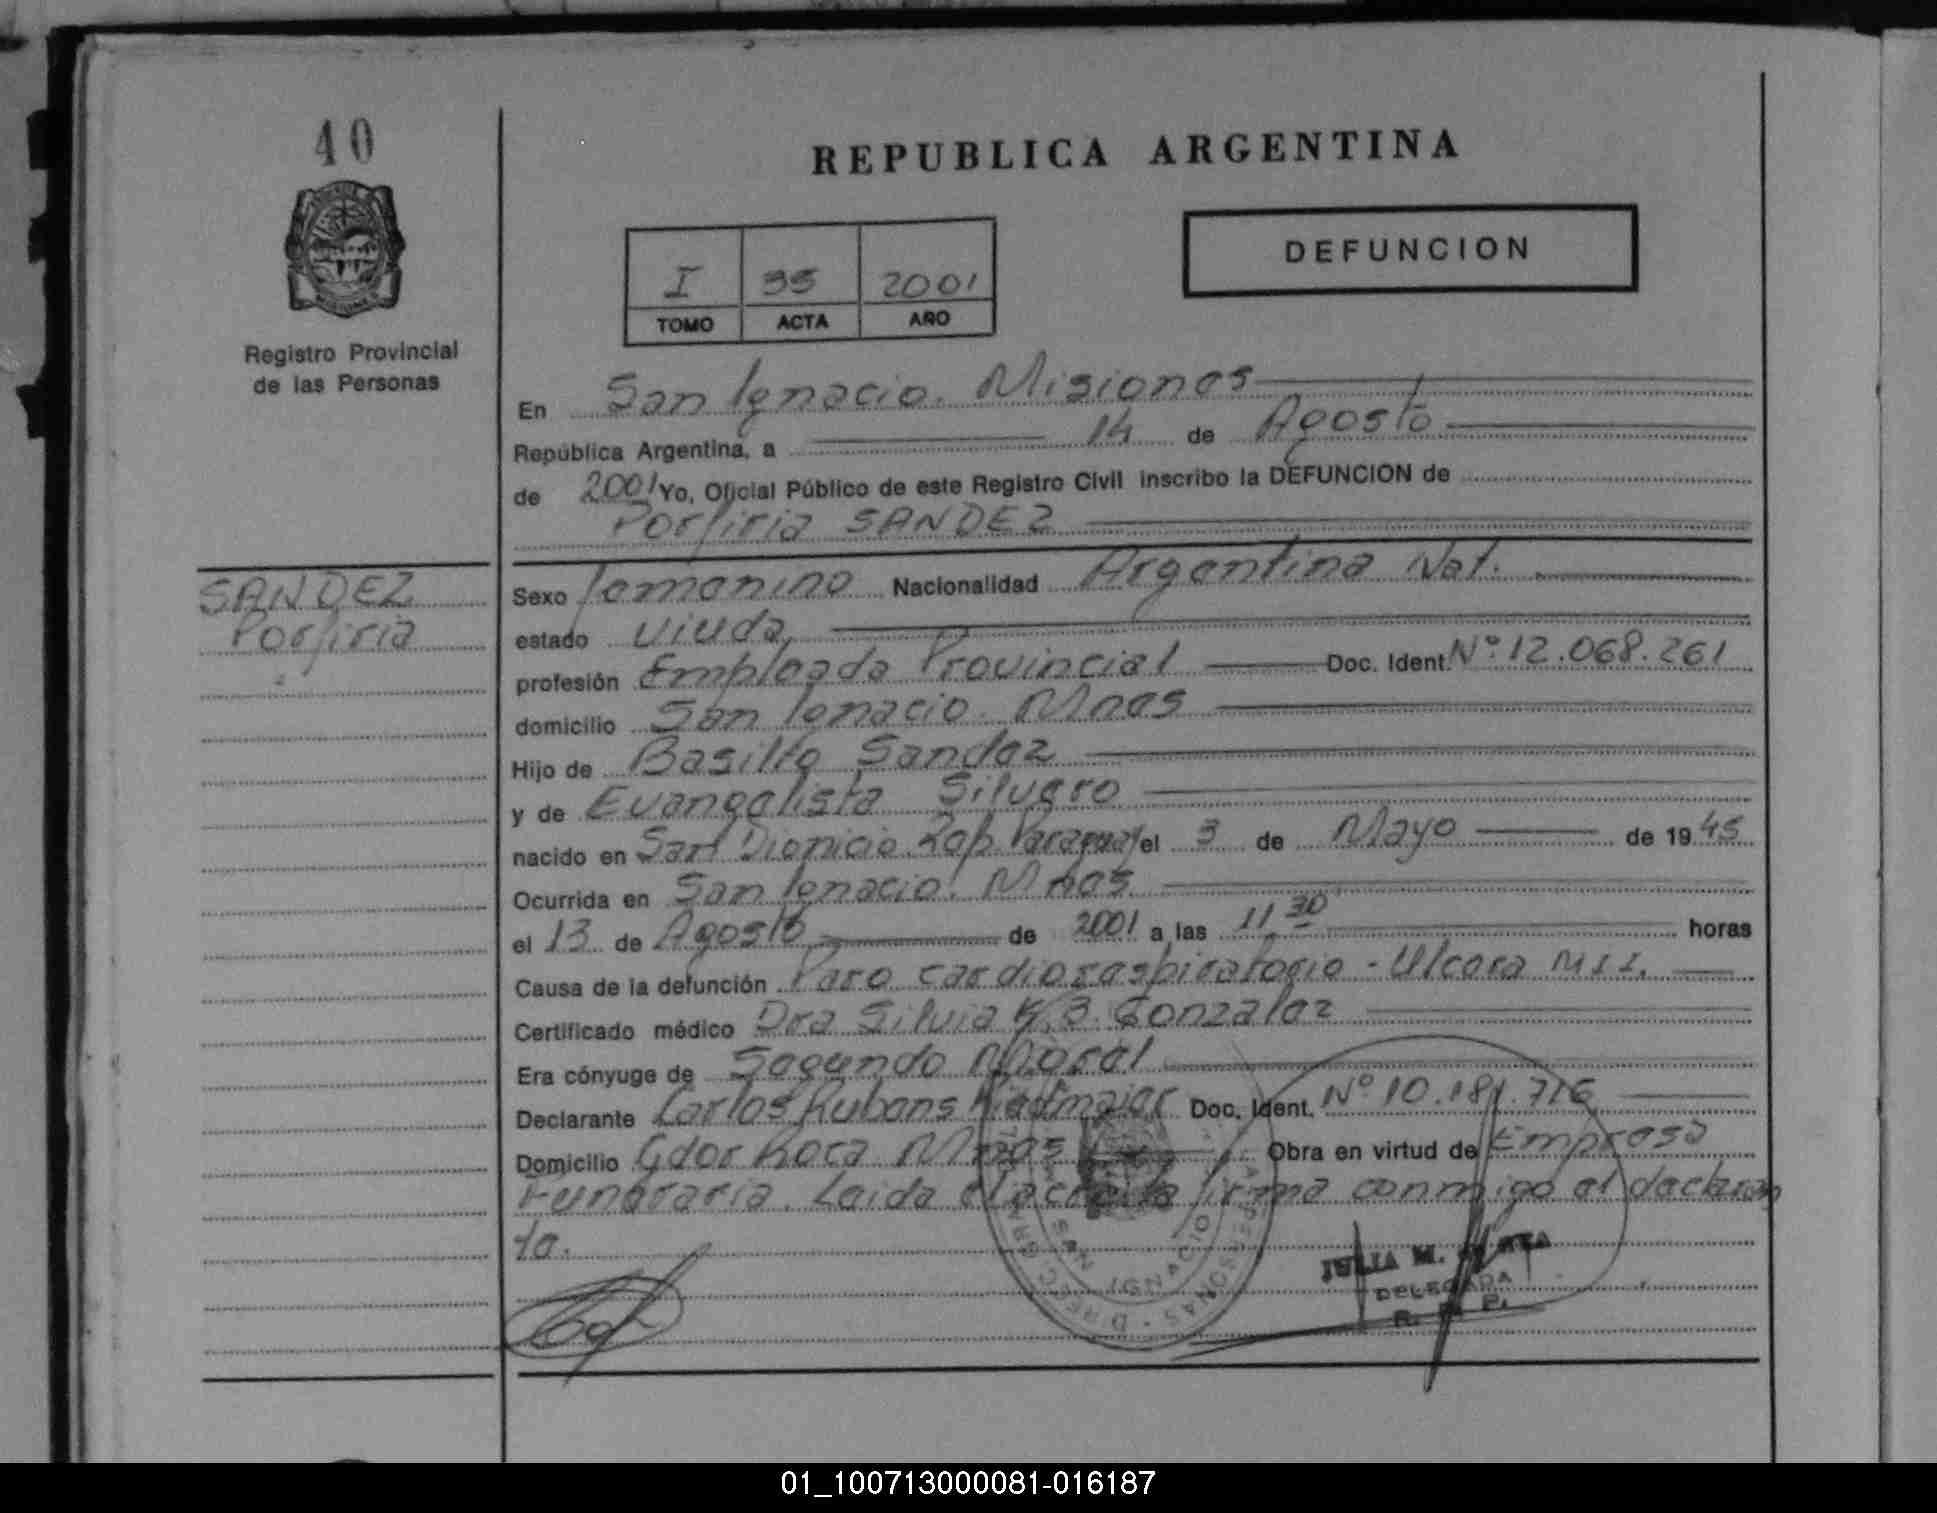 40
REPUBLICA ARGENTINA
DEFUNCION
I 35 2001
TOMO ACTA AÑO
Registro Provincial
de las Personas
En San Ignacio. Misiones
República Argentina, a 14 de Agosto
de 2001 Yo, Oficial Público de este Registro Civil inscribo la DEFUNCION de
Porfiria SANDEZ
SANDEZ
Porfiria
Sexo femenino Nacionalidad Argentina Nat.
estado viuda
profesión Empleada Provincial Doc. Ident. Nº 12.068.261
domicilio San Ignacio. Mnes
Hijo de Basilio Sandez
y de Evangelista Silvero
nacido en San Dionicio Rep. Paraguay el 3 de Mayo de 1945
Ocurrida en San Ignacio. Mnes
el 13 de Agosto de 2001 a las 11,30 horas
Causa de la defunción Paro cardiorespiratorio - Ulcera M.I.I.
Certificado médico Dra Silvia B. Gonzalez
Era cónyuge de Segundo
Declarante Carlos Rubens Doc. Ident. Nº 10.181.716
Domicilio Gdor Roca Mnes Obra en virtud de Empresa
Funeraria. Leida el acta la firma conmigo el declaran
te.
SAN IGNACIO
JULIA M.
DELEGADA
R. P. P.
01_100713000081-016187